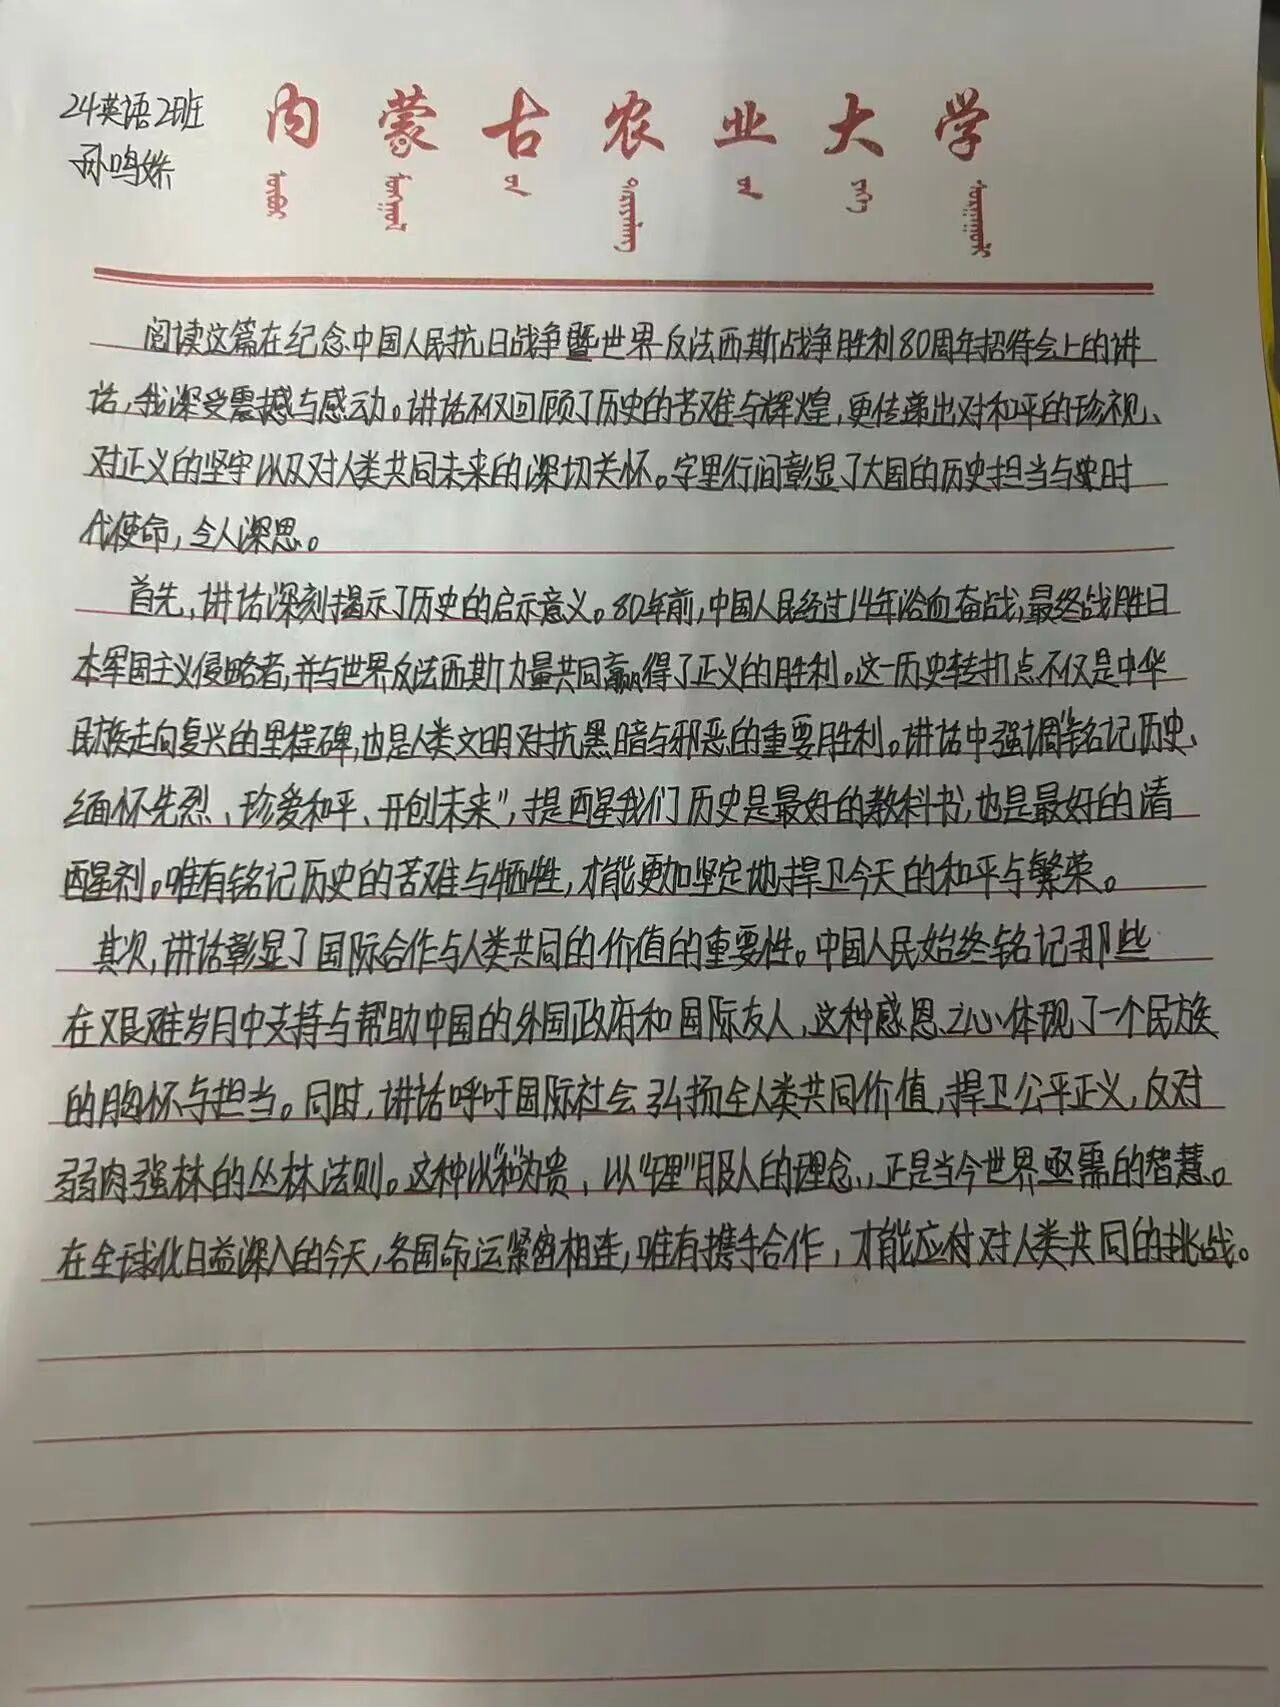 24英语2班
孙鸣姝
内蒙古农业大学
阅读这篇在纪念中国人民抗日战争暨世界反法西斯战争胜利80周年招待会上的讲
话,我深受震撼与感动。讲话不仅回顾了历史的苦难与辉煌,更传递出对和平的珍视、
对正义的坚守以及对人类共同未来的深切关怀。字里行间彰显了大国的历史担当与时
代使命,令人深思。
首先,讲话深刻揭示了历史的启示意义。80年前,中国人民经过14年浴血奋战,最终战胜日
本军国主义侵略者,并与世界反法西斯力量共同赢得了正义的胜利。这一历史转折点不仅是中华
民族走向复兴的里程碑,也是人类文明对抗黑暗与邪恶的重要胜利。讲话中强调"铭记历史、
缅怀先烈、珍爱和平、开创未来",提醒我们历史是最好的教科书,也是最好的清
醒剂。唯有铭记历史的苦难与牺牲,才能更加坚定地捍卫今天的和平与繁荣。
其次,讲话彰显了国际合作与人类共同的价值的重要性。中国人民始终铭记那些
在艰难岁月中支持与帮助中国的外国政府和国际友人,这种感恩之心体现了一个民族
的胸怀与担当。同时,讲话呼吁国际社会弘扬全人类共同价值,捍卫公平正义,反对
弱肉强林的丛林法则。这种以"和"为贵、以"理"服人的理念,正是当今世界亟需的智慧。
在全球化日益深入的今天,各国命运紧密相连,唯有携手合作,才能应付对人类共同的挑战。